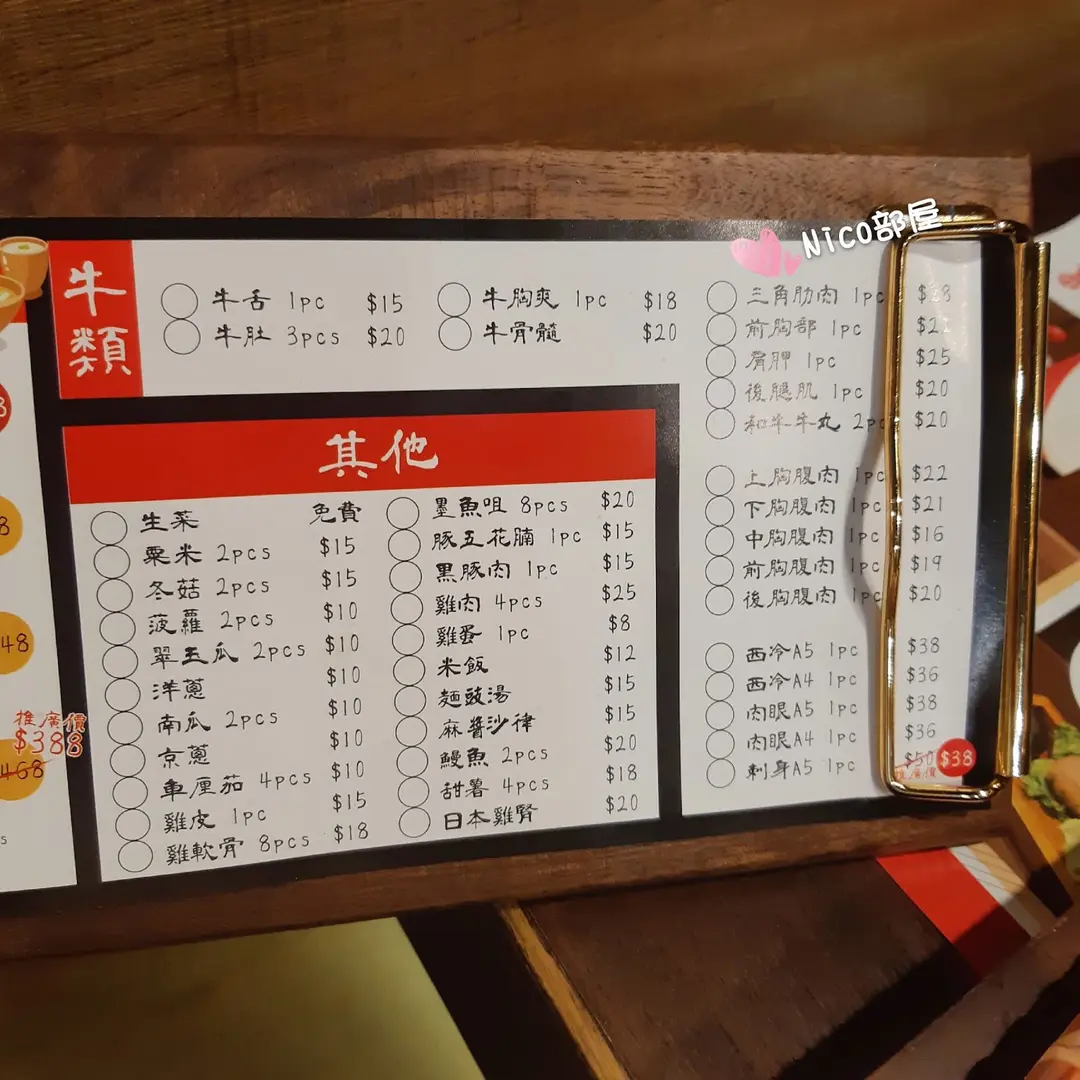 Nico部屋
牛類
牛舌 1pc $15
牛肚 3pcs $20
牛胸爽 1pc $18
牛骨髓 $20
三角肋肉 1pc
前胸部 1pc
肩胛 1pc $25
後腿肌 1pc $20
和牛牛丸 $20
上胸腹肉 1pc $22
下胸腹肉 1pc $21
中胸腹肉 1pc $16
前胸腹肉 1pc $19
後胸腹肉 1pc $20
西冷A5 1pc $38
西冷A4 1pc $36
肉眼A5 1pc $38
肉眼A4 1pc $36
刺身A5 1pc $50 $38
推廣價
其他
生菜 免費
粟米 2pcs $15
冬菇 2pcs $15
菠蘿 2pcs $10
翠玉瓜 2pcs $10
洋蔥 $10
南瓜 2pcs $10
京蔥 $10
車厘茄 4pcs $10
雞皮 1pc $15
雞軟骨 8pcs $18
墨魚咀 8pcs $20
豚五花腩 1pc $15
黑豚肉 1pc $15
雞肉 4pcs $25
雞蛋 1pc $8
米飯 $12
麵豉湯 $15
麻醬沙律 $15
鰻魚 2pcs $20
甜薯 4pcs $18
日本雞腎 $20
推廣價
$388
468